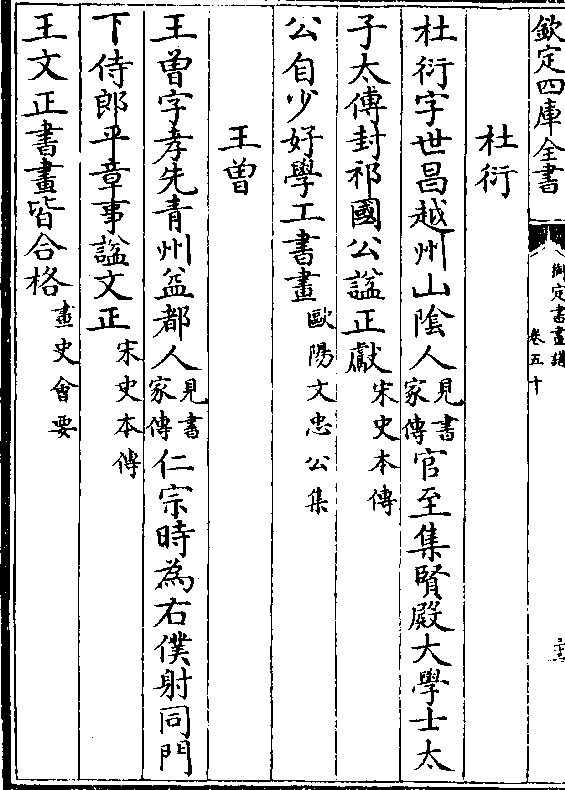 欽定四庫全書
御定書畫譜
卷五十
杜衍
杜衍字世昌越州山隂人見書家傳官至集賢殿大學士太
子太傅封祁國公諡正獻宋史本傳
公自少好學工書畫歐陽文忠公集
王曾
王曾字孝先青州益都人見書家傳仁宗時為右僕射同門
下侍郎平章事諡文正宋史本傳
王文正書畫皆合格畫史會要